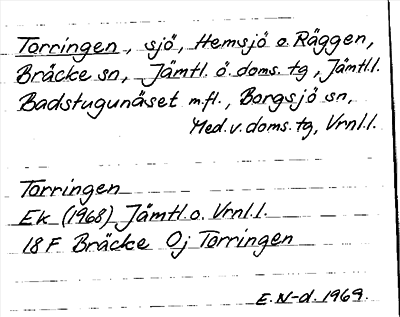 Torringen, sjö, Hemsjö o. Räggen,
Bräcke sn, Jämtl. ö. doms. tg, Jämtl.l.
Badstugunäset m.fl., Borgsjö sn,
Med. v. doms. tg, Vrnl.l.
Torringen
Ek (1968) Jämtl. o. Vrnl.l.
18 F Bräcke Oj Torringen
E. N-d. 1969.